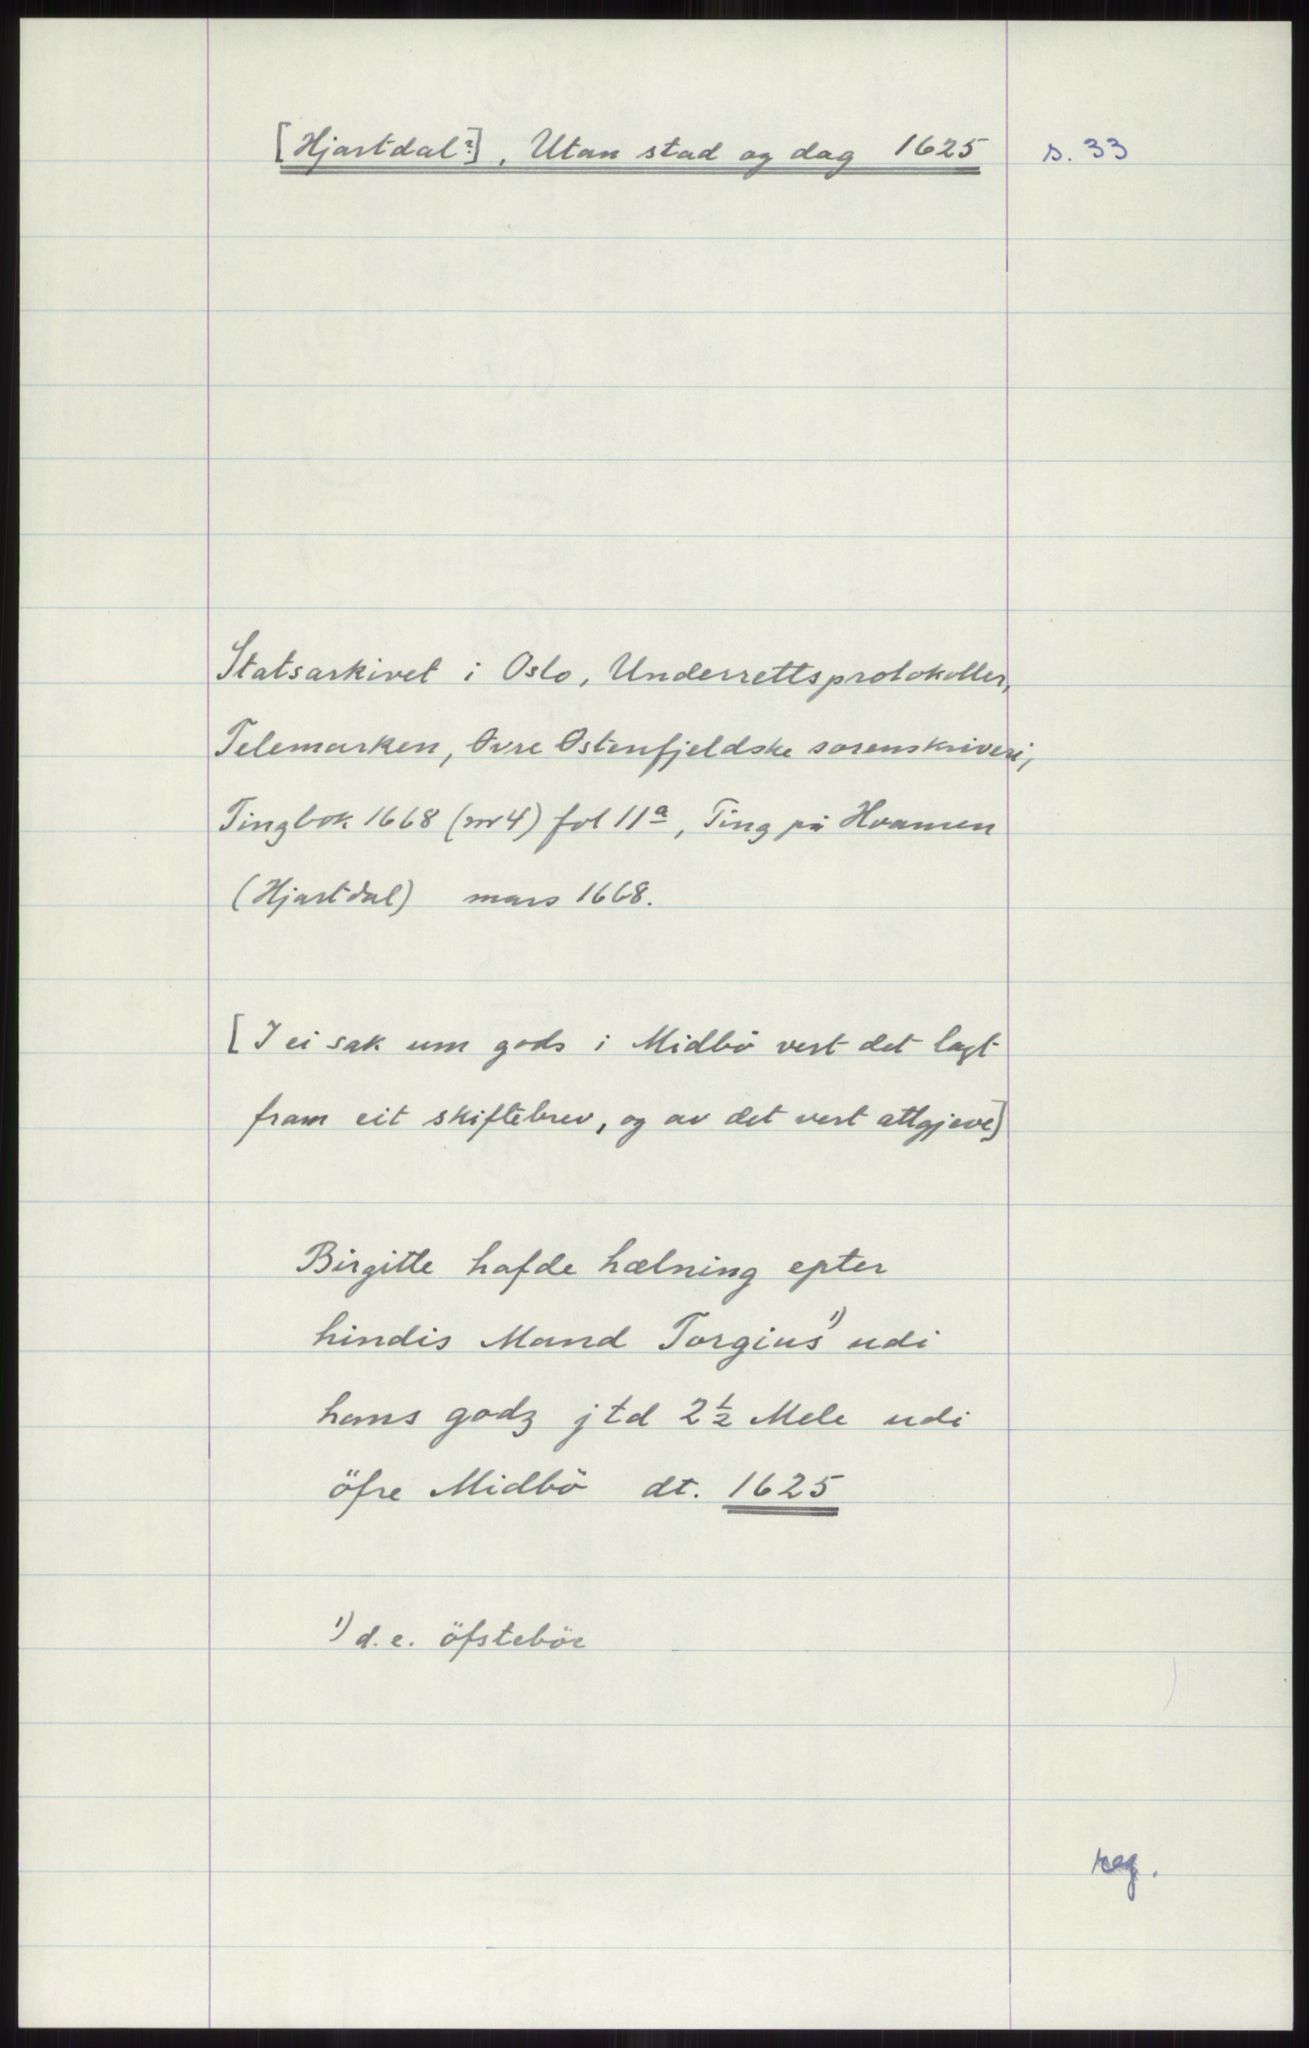 [Hjartdal?], Utan stad og dag 1625
s. 33
Statsarkivet i Oslo, Underrettsprotokoller,
Telemarken, Øvre Østenfjeldske sorenskriveri,
Tingbok 1668 (nr 4) fol 11a, Ting på Hvamen
(Hjartdal) mars 1668.
[I ei sak um gods i Midbö vert det lagt
fram eit skiftebrev, og av det vert attgjeve]
Birgitte hafde hælning epter
hindis Mand Torgius 1) udi
hans godz jtd 2½ Mele udi
öfre Midbö dt. 1625
1) d.e. öfsteböe
reg.